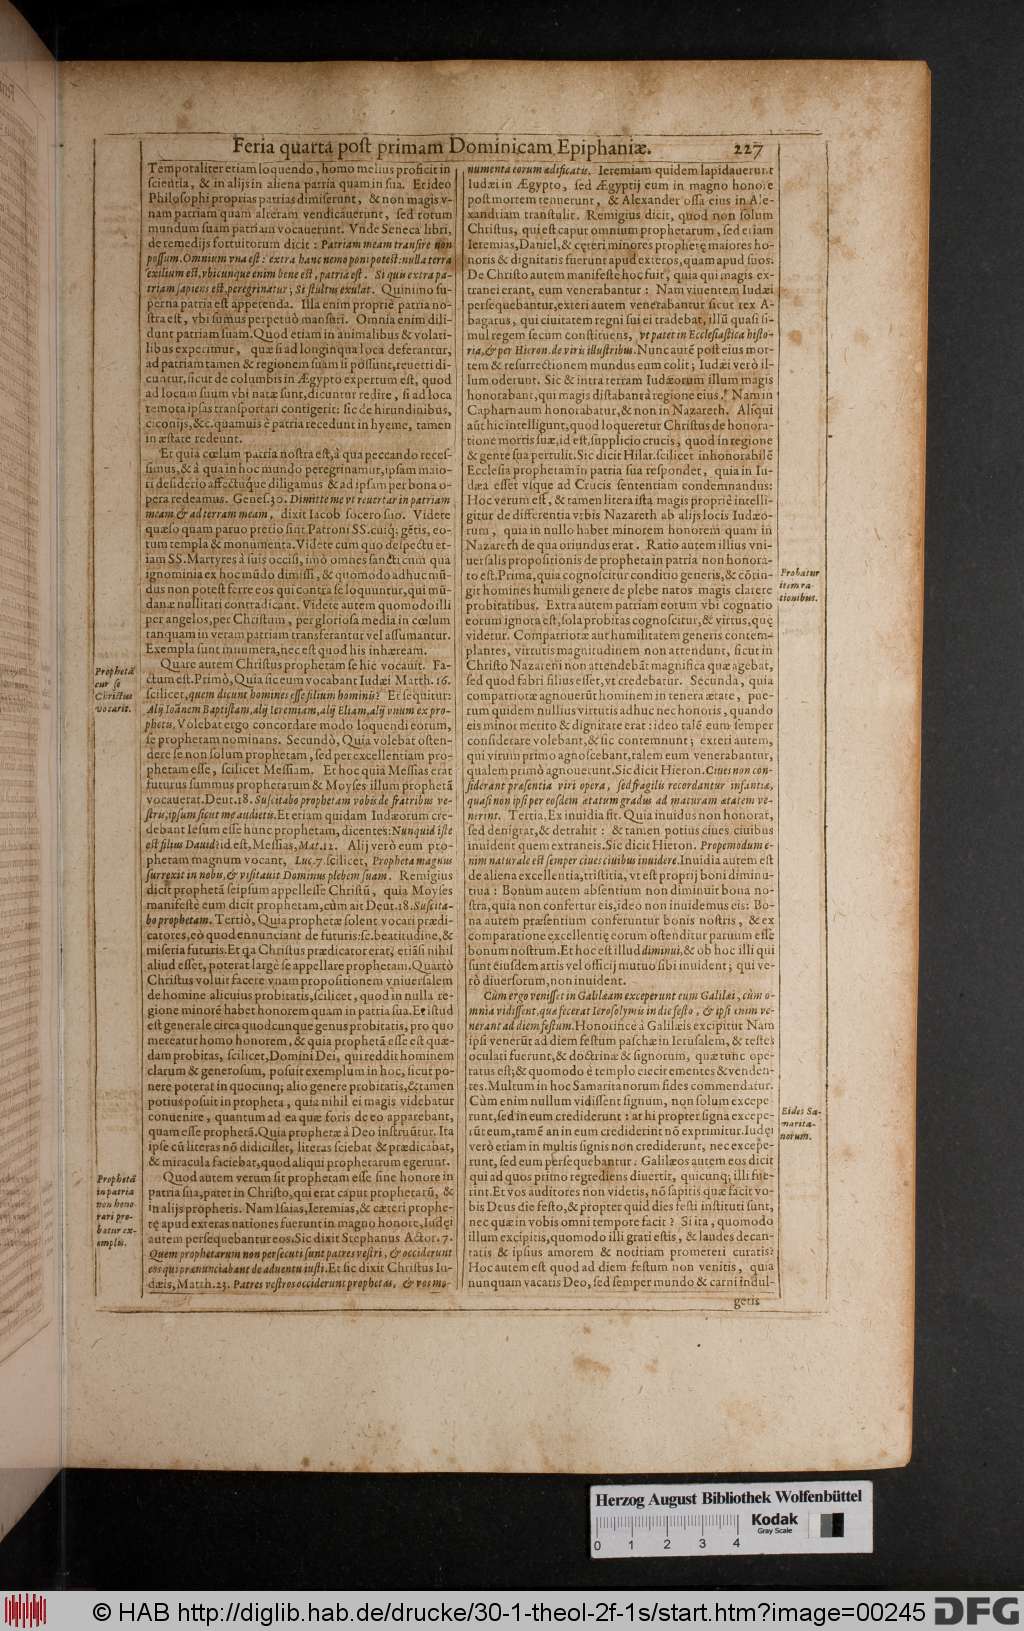 Feria quarta post primam Dominicam Epiphaniæ. 227
Temporaliter etiam loquendo, homo melius proficit in
scientia, & in alijs in aliena patria quam in sua. Et ideo
Philosophi proprias patrias dimiserunt, & non magis v-
nam patriam quam alteram vendicauerunt, sed totum
mundum suam patriam vocauerunt. Vnde Seneca libri,
de remedijs fortuitorum dicit: Patriam meam transire non
possum. Omnium vna est: extra hanc nemo poni potest: nulla terra
exilium est, vbicunque enim bene est, patria est. Si quis extra pa-
triam sapiens est, peregrinatur; Si stultus exulat. Quinimo su-
perna patria est appetenda. Illa enim propriè patria no-
stra est, vbi sumus perpetuò mansuri. Omnia enim dili-
dunt patriam suam. Quod etiam in animalibus & volati-
libus experimur, quæ si ad longinqua loca deferantur,
ad patriam tamen & regionem suam si possunt, reuerti di-
cuntur, sicut de columbis in Ægypto expertum est, quod
ad locum suum vbi natæ sunt, dicuntur redire, si ad loca
remota ipsas transportari contigerit: sic de hirundinibus,
ciconijs, &c. quamuis è patria recedunt in hyeme, tamen
in æstate redeunt.
Et quia cœlum patria nostra est, à qua peccando reces-
simus, & à qua in hoc mundo peregrinamur, ipsam maio-
ri desiderio affectuque diligamus & ad ipsam per bona o-
pera redeamus. Genes. 30. Dimitte me vt reuertar in patriam
meam & ad terram meam, dixit Iacob socero suo. Videte
quæso quam paruo pretio sint Patroni SS. cuiq; gētis, eo-
rum templa & monumenta. Videte cum quo despectu et-
iam SS. Martyres à suis occisi, imò omnes sancti cum qua
ignominia ex hoc mūdo dimissi, & quomodo adhuc mū-
dus non potest ferre eos qui contra se loquuntur, qui mū-
danæ nullitati contradicant. Videte autem quomodo illi
per angelos, per Christum, per gloriosa media in cœlum
tanquam in veram patriam transferantur vel assumantur.
Exempla sunt innumera, nec est quod his inhæream.
Prophetā
cur se
Christus
vocarit.
Quare autem Christus prophetam se hic vocauit. Fa-
ctum est. Primò, Quia sic eum vocabant Iudæi Matth. 16.
scilicet, quem dicunt homines esse filium hominis? Et sequitur:
Alij Ioānem Baptistam, alij Ieremiam, alij Eliam, alij vnum ex pro-
phetis, Volebat ergo concordare modo loquendi eorum,
se prophetam nominans. Secundò, Quia volebat osten-
dere se non solum prophetam, sed per excellentiam pro-
phetam esse, scilicet Messiam. Et hoc quia Messias erat
futurus summus prophetarum & Moyses illum prophetā
vocauerat. Deut. 18. Suscitabo prophetam vobis de fratribus ve-
stris, ipsum sicut me audietis. Et etiam quidam Iudæorum cre-
debant Iesum esse hunc prophetam, dicentes: Nunquid iste
est filius Dauid? id est, Messias, Mat. 12. Alij verò eum pro-
phetam magnum vocant, Luc. 7. scilicet, Propheta magnus
surrexit in nobis, & visitauit Dominus plebem suam. Remigius
dicit prophetā seipsum appellesse Christū, quia Moyses
manifestè eum dicit prophetam, cùm ait Deut. 18. Suscita-
bo prophetam. Tertiò, Quia prophetæ solent vocari prædi-
catores, eò quod ennunciant de futuris: sc. beatitudine, &
miseria futuris. Et qa Christus prædicator erat, etiāsi nihil
aliud esset, poterat largè se appellare prophetam. Quartò
Christus voluit facere vnam propositionem vniuersalem
de homine alicuius probitatis, scilicet, quod in nulla re-
gione minorē habet honorem quam in patria sua. Et istud
est generale circa quodcunque genus probitatis, pro quo
mereatur homo honorem, & quia prophetā esse est quæ-
dam probitas, scilicet, Domini Dei, qui reddit hominem
clarum & generosum, posuit exemplum in hoc, sicut po-
nere poterat in quocunq; alio genere probitatis, & tamen
potius posuit in propheta, quia nihil ei magis videbatur
conuenire, quantum ad ea quæ foris de eo apparebant,
quam esse prophetā. Quia prophetæ à Deo instruūtur. Ita
ipse cū literas nō didicisset, literas sciebat & prædicabat,
& miracula faciebat, quod aliqui prophetarum egerunt.
Prophetā
in patria
non hono-
rari pro-
batur ex-
emplis.
Quod autem verum sit prophetam esse sine honore in
patria sua, patet in Christo, qui erat caput prophetarū, &
in alijs prophetis. Nam Isaias, Ieremias, & cæteri prophe-
tę apud exteras nationes fuerunt in magno honore, Iudęi
autem persequebantur eos. Sic dixit Stephanus Actor. 7.
Quem prophetarum non persecuti sunt patres vestri, & occiderunt
eos qui prænunciabant de aduentu iusti. Et sic dixit Christus Iu-
dæis, Matth. 23. Patres vestros occiderunt prophetas, & vos mo-
numenta eorum ædificatis. Ieremiam quidem lapidauerunt
Iudæi in Ægypto, sed Ægyptij eum in magno honore
post mortem tenuerunt, & Alexander ossa eius in Ale-
xandriam transtulit. Remigius dicit, quod non solum
Christus, qui est caput omnium prophetarum, sed etiam
Ieremias, Daniel, & cęteri minores prophetę maiores ho-
noris & dignitatis fuerunt apud exteros, quam apud suos.
De Christo autem manifestè hoc fuit, quia qui magis ex-
tranei erant, eum venerabantur: Nam viuentem Iudæi
persequebantur, exteri autem venerabantur sicut rex A-
bagarus, qui ciuitatem regni sui ei tradebat, illū quasi si-
mul regem secum constituens, vt patet in Ecclesiastica histo-
ria, & per Hieron. de viris illustribus. Nunc autē post eius mor-
tem & resurrectionem mundus eum colit; Iudæi verò il-
lum oderunt. Sic & intra terram Iudæorum illum magis
honorabant, qui magis distabant à regione eius. Nam in
Capharnaum honorabatur, & non in Nazareth. Aliqui
aūt hic intelligunt, quod loqueretur Christus de honora-
tione mortis suæ, id est, supplicio crucis, quod in regione
& gente sua pertulit. Sic dicit Hilar. scilicet inhonorabilē
Ecclesia prophetam in patria sua respondet, quia in Iu-
dæa esset vsque ad Crucis sententiam condemnandus:
Hoc verum est, & tamen litera ista magis propriè intelli-
gitur de differentia vrbis Nazareth ab alijs locis Iudæo-
rum, quia in nullo habet minorem honorem quam in
Nazareth de qua oriundus erat. Ratio autem illius vni-
uersalis propositionis de propheta in patria non honora-
to est. Prima, quia cognoscitur conditio generis, & cōtin-
git homines humili genere de plebe natos magis clarere
probitatibus. Extra autem patriam eorum vbi cognatio
eorum ignota est, sola probitas cognoscitur, & virtus, quę
videtur. Compatriotæ aut humilitatem generis contem-
plantes, virtutis magnitudinem non attendunt, sicut in
Christo Nazareni non attendebāt magnifica quæ agebat,
sed quod fabri filius esset, vt credebatur. Secunda, quia
compatriotæ agnouerūt hominem in tenera ætate, pue-
rum quidem nullius virtutis adhuc nec honoris, quando
eis minor merito & dignitate erat: ideo talē eum semper
considerare volebant, & sic contemnunt; exteri autem,
qui virum primo agnoscebant, talem eum venerabantur,
qualem primò agnouerunt. Sic dicit Hieron. Ciues non con-
siderant præsentia viri opera, sed fragilis recordantur infantiæ,
quasi non ipsi per eosdem ætatum gradus ad maturam ætatem ve-
nerint. Tertia. Ex inuidia fit. Quia inuidus non honorat,
sed denigrat, & detrahit: & tamen potius ciues ciuibus
inuident quem extraneis. Sic dicit Hieron. Propemodum e-
nim naturale est semper ciues ciuibus inuidere. Inuidia autem est
de aliena excellentia, tristitia, vt est proprij boni diminu-
tiua: Bonum autem absentium non diminuit bona no-
stra, quia non confertur eis, ideo non inuidemus eis: Bo-
na autem præsentium conferuntur bonis nostris, & ex
comparatione excellentię eorum ostenditur paruum esse
bonum nostrum. Et hoc est illud diminui, & ob hoc illi qui
sunt eiusdem artis vel officij mutuo sibi inuident; qui ve-
rò diuersorum, non inuident.
Probatur
item ra-
tionibus.
Cùm ergo venisset in Galilæam exceperunt eum Galilæi, cùm o-
mnia vidissent, quæ fecerat Ierosolymis in die festo, & ipsi enim ve-
nerant ad diem festum. Honorificè à Galilæis excipitur Nam
ipsi venerūt ad diem festum paschæ in Ierusalem, & testes
oculati fuerunt, & doctrinæ & signorum, quæ tunc ope-
ratus est; & quomodo è templo eiecit ementes & venden-
tes. Multum in hoc Samaritanorum fides commendatur.
Cùm enim nullum vidissent signum, non solum excepe-
runt, sed in eum crediderunt: at hi propter signa excepe-
rūt eum, tamē an in eum crediderint nō exprimitur. Iudęi
verò etiam in multis signis non crediderunt, nec excepe-
runt, sed eum persequebantur. Galilæos autem eos dicit
qui ad quos primo regrediens diuertit, quicunq; illi fue-
rint. Et vos auditores non videtis, nō sapitis quæ facit vo-
bis Deus die festo, & propter quid dies festi instituti sunt,
nec quæ in vobis omni tempore facit? Si ita, quomodo
illum excipitis, quomodo illi grati estis, & laudes decan-
tatis & ipsius amorem & notitiam promereri curatis?
Hoc autem est quod ad diem festum non venitis, quia
nunquam vacatis Deo, sed semper mundo & carni indul-
getis
Fides Sa-
marita-
norum.
Herzog August Bibliothek Wolfenbüttel
Kodak
Gray Scale
0 1 2 3 4
© HAB http://diglib.hab.de/drucke/30-1-theol-2f-1s/start.htm?image=00245 DFG